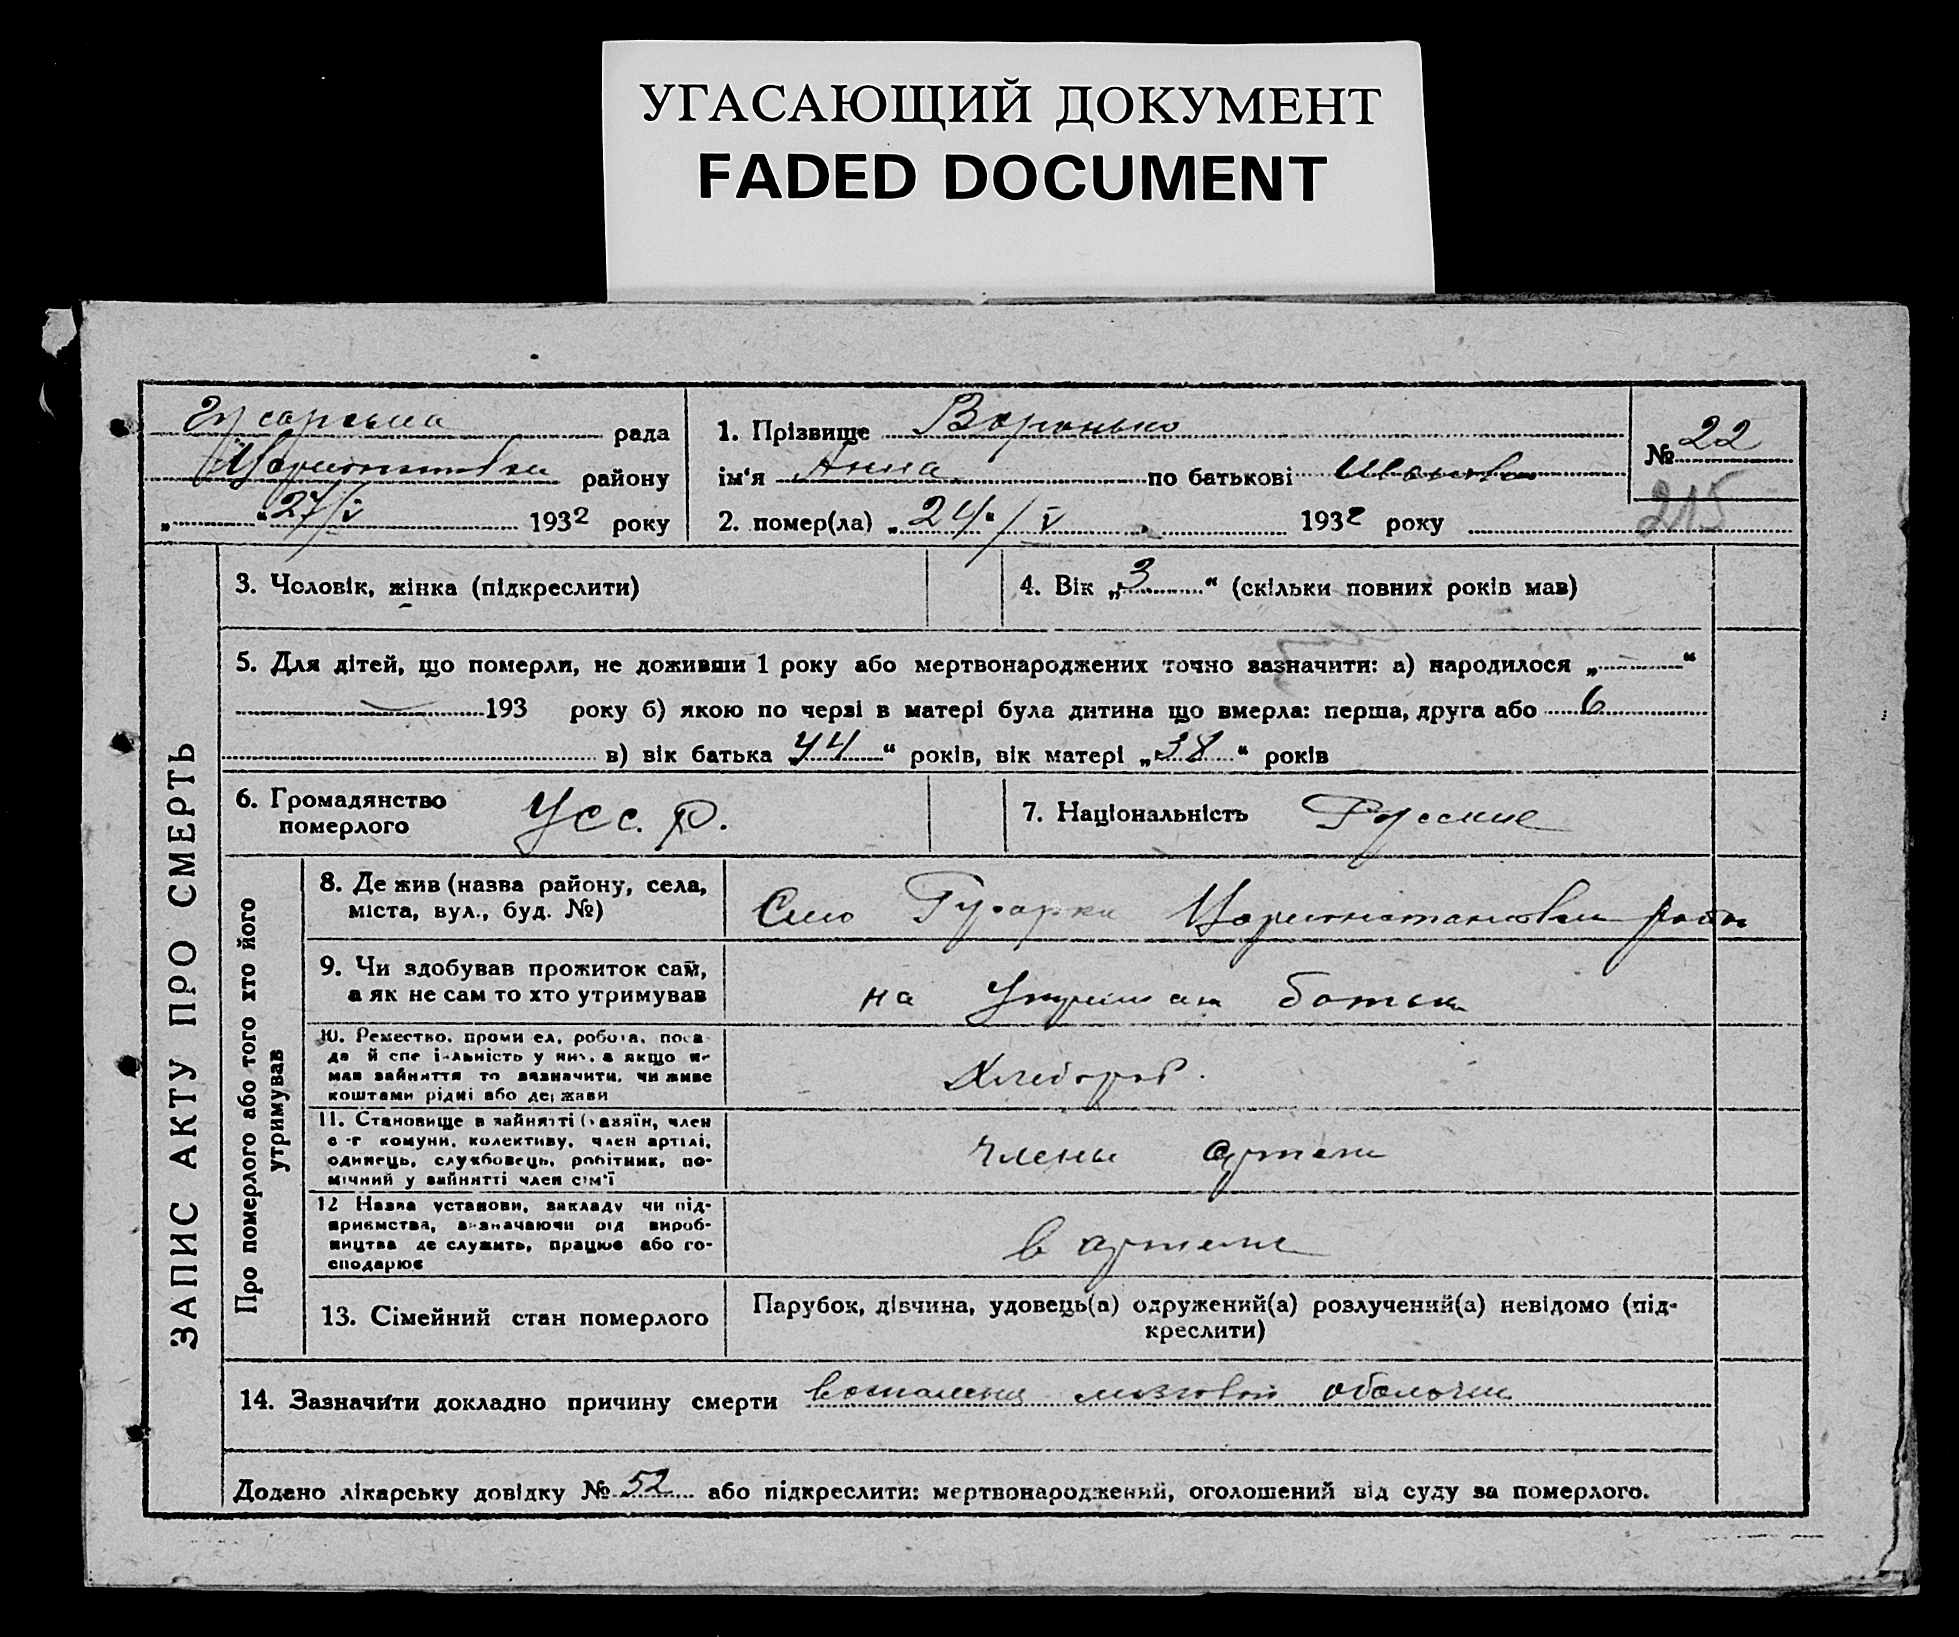 УГАСАЮЩИЙ ДОКУМЕНТ
FADED DOCUMENT
Гусарська рада
району
„ “ 27/V 1932 року
1. Прізвище Воронько
ім'я Анна по батькові Иванова
2. помер(ла) „24“/V 1932 року
№ 22
215
ЗАПИС АКТУ ПРО СМЕРТЬ
3. Чоловік, жінка (підкреслити)
4. Вік „3“ (скільки повних років мав)
5. Для дітей, що померли, не доживши 1 року або мертвонароджених точно зазначити: а) народилося „ — “
— 193 року б) якою по черзі в матері була дитина що вмерла: перша, друга або 6
в) вік батька „44“ років, вік матері „38“ років
6. Громадянство
померлого
УСС.Р.
7. Національність Русские
Про померлого або того хто його
утримував
8. Де жив (назва району, села,
міста, вул., буд. №)
Село Гусарка
9. Чи здобував прожиток сам,
а як не сам то хто утримував
на батька
10. Ремество, проми ел, робота, поса
да й спе і-льність у них, а якщо не
мав зайняття то зазначити, чи живе
коштами рідні або держави
Хлебороб.
11. Становище в зайнятті (хазяїн, член
с-г комуни, колективу, член артілі,
одинець, службовець, робітник, по-
мічний у зайнятті член сім'ї
члены артели
12 Назва установи, закладу чи під-
приємства, зазначаючи рід вироб-
ництва де служить, працює або го-
сподарює
в артели
13. Сімейний стан померлого
Парубок, дівчина, удовець(а) одружений(а) розлучений(а) невідомо (під-
креслити)
14. Зазначити докладно причину смерти воспаление мозговой оболочки
Додано лікарську довідку № 52 або підкреслити: мертвонароджений, оголошений від суду за померлого.